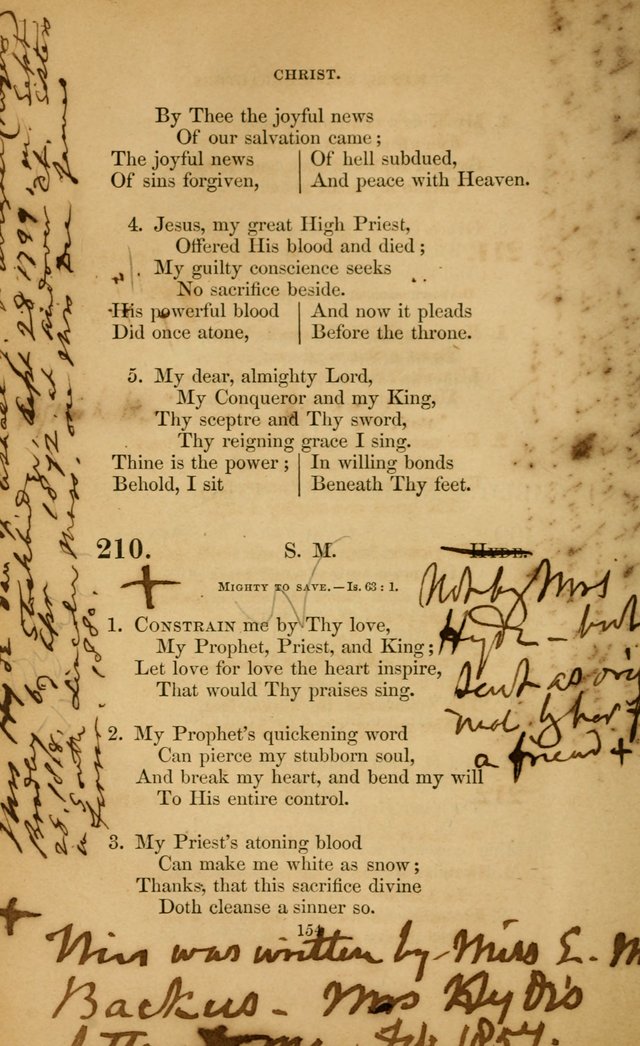 CHRIST.
By Thee the joyful news
Of our salvation came;
The joyful news | Of hell subdued,
Of sins forgiven, | And peace with Heaven.
4. Jesus, my great High Priest,
Offered His blood and died;
My guilty conscience seeks
No sacrifice beside.
His powerful blood | And now it pleads
Did once atone, | Before the throne.
5. My dear, almighty Lord,
My Conqueror and my King,
Thy sceptre and Thy sword,
Thy reigning grace I sing.
Thine is the power; | In willing bonds
Behold, I sit | Beneath Thy feet.
210. S. M. Hyde.
Mighty to save.—Is. 63:1.
1. Constrain me by Thy love,
My Prophet, Priest, and King;
Let love for love the heart inspire,
That would Thy praises sing.
2. My Prophet's quickening word
Can pierce my stubborn soul,
And break my heart, and bend my will
To His entire control.
3. My Priest's atoning blood
Can make me white as snow;
Thanks, that this sacrifice divine
Doth cleanse a sinner so.
154
Not by Mrs
Hyde - but
sent as
by her
a friend +
+
+
was written by Miss E. M
Backus - Mrs Hyde's
Feb. 1857.
Mrs Hyde
Bradley Stockbridge, Sept 28 1799, m. Sept
28. 1818. 1872 at Andover Ct. Sister
South Lincoln Mass. one Mrs James
1880.